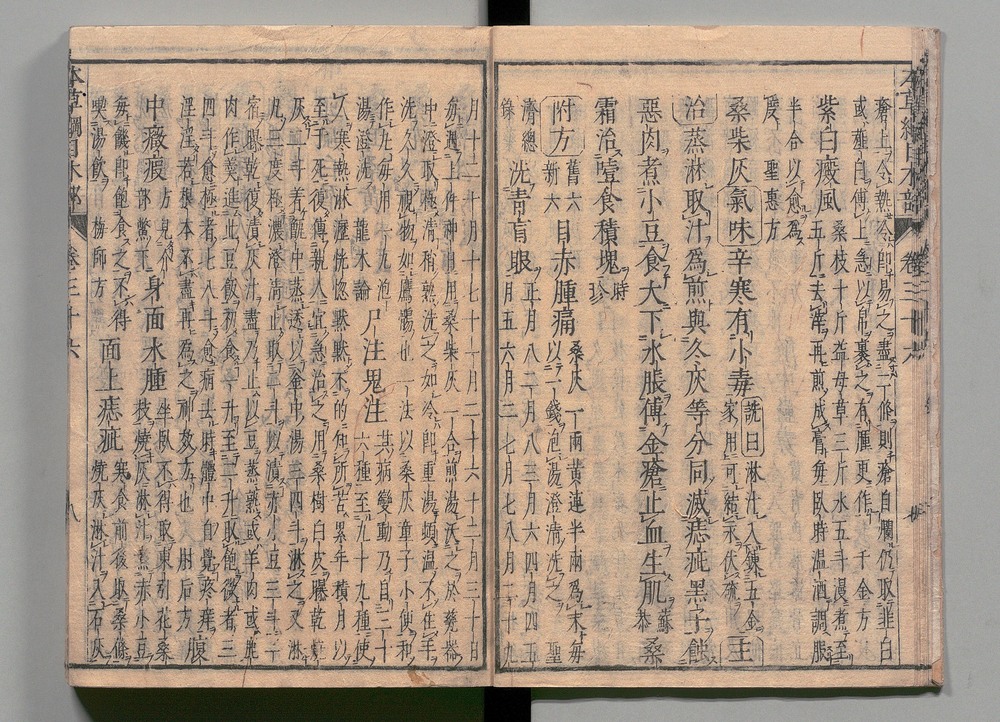 瘡上令熱冷即易之盡二條則瘡自爛仍取韭白
或薤白傅上急以帛裹之有腫更作 千金方
紫白癜風 桑枝十斤益母草三斤水五斗漫煮至
五斤去滓再煎成膏每臥時溫酒調服
半合以愈為
度 聖惠方
桑柴灰 氣味 辛寒有小毒 詵曰淋汁入鍊五金
家用可結汞伏硫 主
治蒸淋取汁為煎與冬灰等分同滅痣疵黑子蝕
惡肉煮小豆食大下水脹傅金瘡止血生肌 蘇恭 桑
霜治噎食積塊 時珍
附方 舊六 新六 目赤腫痛 桑灰一兩黃連半兩為末每
以一錢泡湯澄清洗之 聖
濟總
錄 洗青盲眼 正月八二月八三月六四月四五
月五六月二七月七八月二十九
月十二十月十七十一月二十六十二月三十日
每遇上件神日用桑柴灰一合煎湯沃之於瓷器
中澄取極清稍熱洗之如冷即重湯頓溫不住手
洗久久視物如鷹鶻也 一法以桑灰童子小便和
作丸每用一丸泡
湯澄洗 龍木論 尸注鬼注 其病變動乃有三十
六種至九十九種使
人寒熱淋瀝恍惚默默不的知所苦累年積月以
至于死復傳親人宜急治之用桑樹白皮曝乾燒
灰二斗著甑中蒸透以釜中湯三四斗淋之又淋
凡三度極濃澄清止取二斗以漬赤小豆二斗一
宿曝乾復漬灰汁盡乃止以豆蒸熟或羊肉或鹿
肉作羹進此豆飯初食一升至二升取飽微者三
四斗愈極者七八斗愈病去時體中自覺疼癢
淫淫若根本不盡再為之神效方也 肘后方 腹
中癥瘕 方見介
部鱉下 身面水腫 坐臥不得取東引花桑
枝燒灰淋汁煮赤小豆
每饑即飽食之不得
喫湯飲 梅師方 面上痣疵 寒食前後取桑條
燒灰淋汁入石灰
本草綱目木部 卷三十六 八